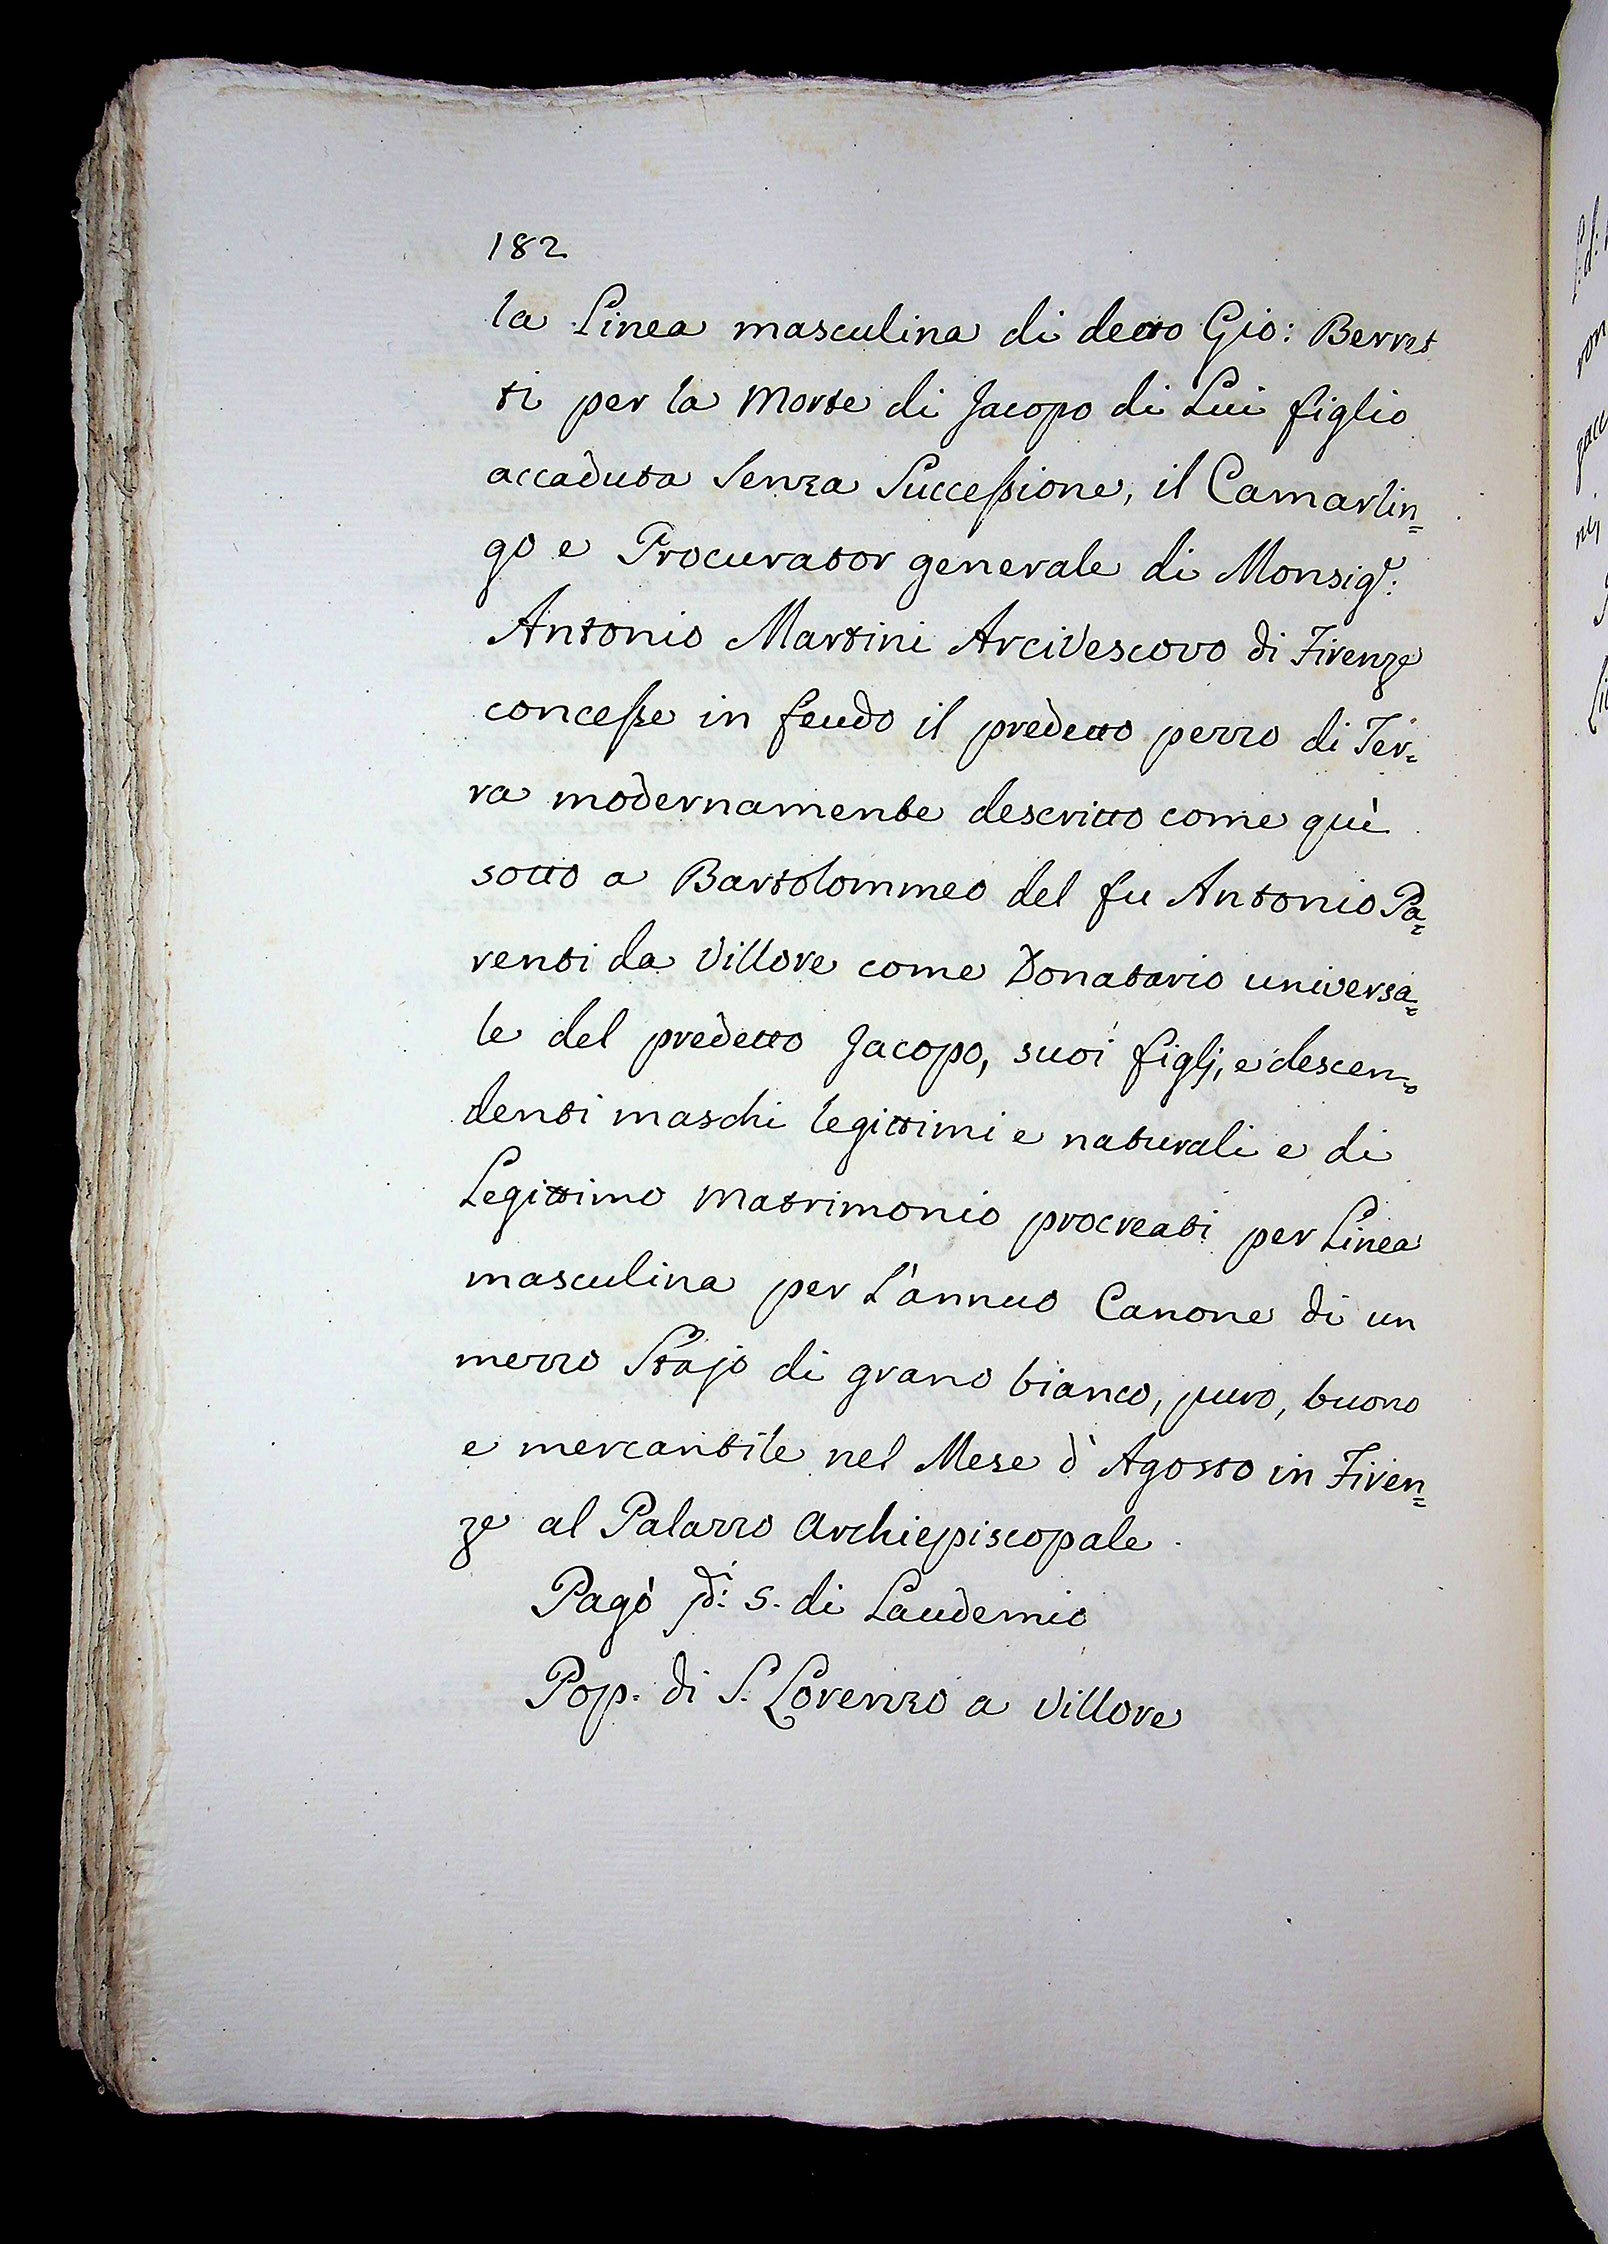 182
la Linea masculina di detto Gio: Berret
ti per la Morte di Jacopo di Lui figlio
accaduta Senza Succeſsione, il Camarlin=
go e Procurator generale di Monsig.r:
Antonio Martini Arcivescovo di Firenze
conceſse in feudo il predetto pezzo di Ter=
ra modernamente descritto come quì
sotto a Bartolommeo del fu Antonio Pa=
renti da Villore come Donatario universa=
le del predetto Jacopo, suoi figlj, e descen=
denti maschi legittimi e naturali e di
Legittimo Matrimonio procreati per Linea
masculina per l'annuo Canone di un
mezzo Stajo di grano bianco, puro, buono
e mercantile nel Mese d'Agosto in Firen=
ze al Palazzo Archiepiscopale.
Pagò 5. di Laudemio
Pop. di S. Lorenzo a Villore